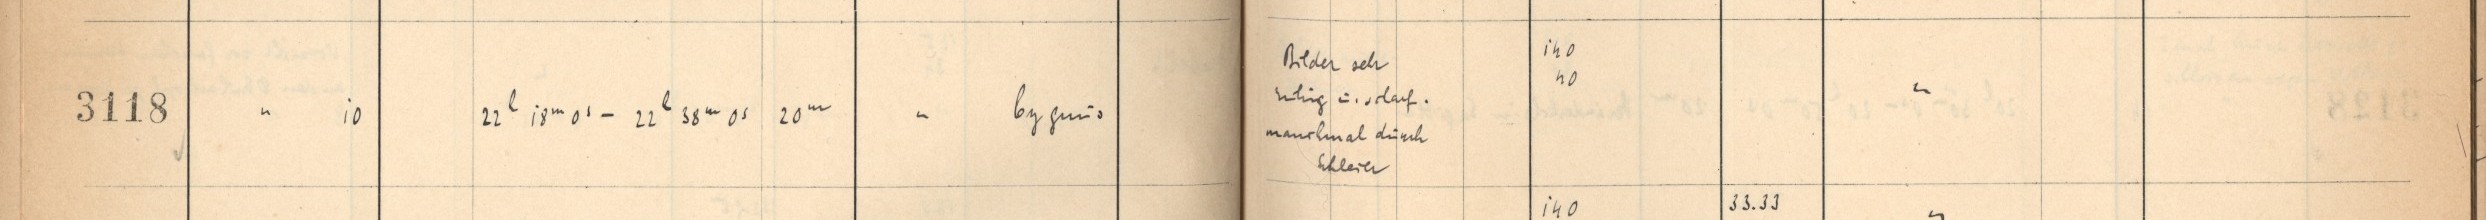 3118 " 10 22h 18m 0s – 22h 38m 0s 20m " Cygnus
Bilder sehr
ruhig u. scharf.
manchmal durch
Schleier
140
40
"
140 33.33 "